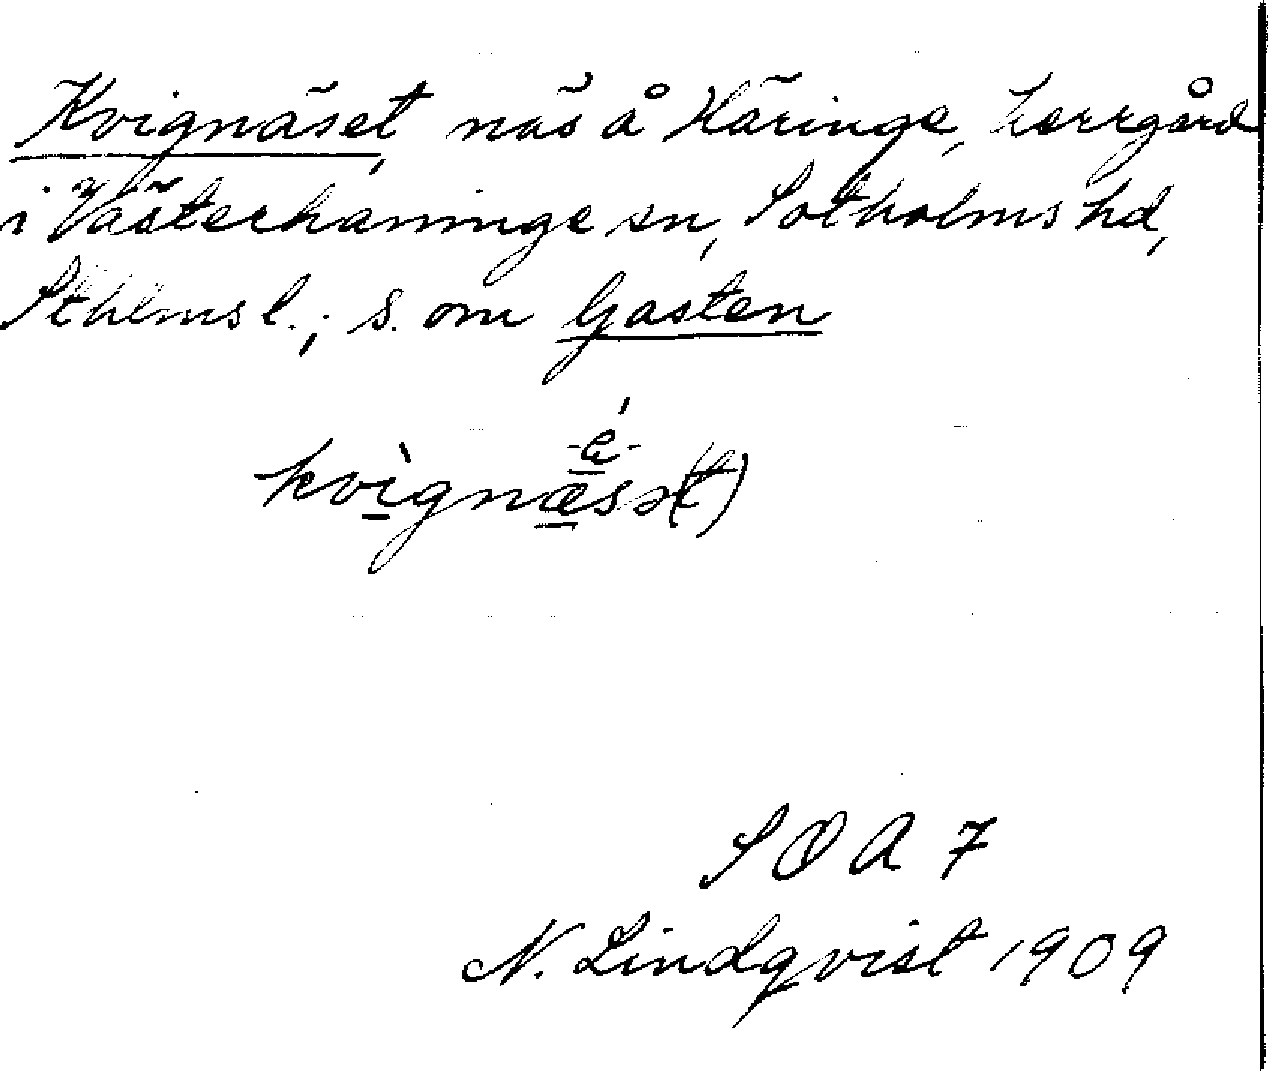 Kvignäset, näs å Häringe, herrgård
i Västerhaninge sn, Sotholms hd,
Sthlms l.; s. om Gasten
-é-
kvìgnæsə(t)
S O A 7
N. Lindqvist 1909